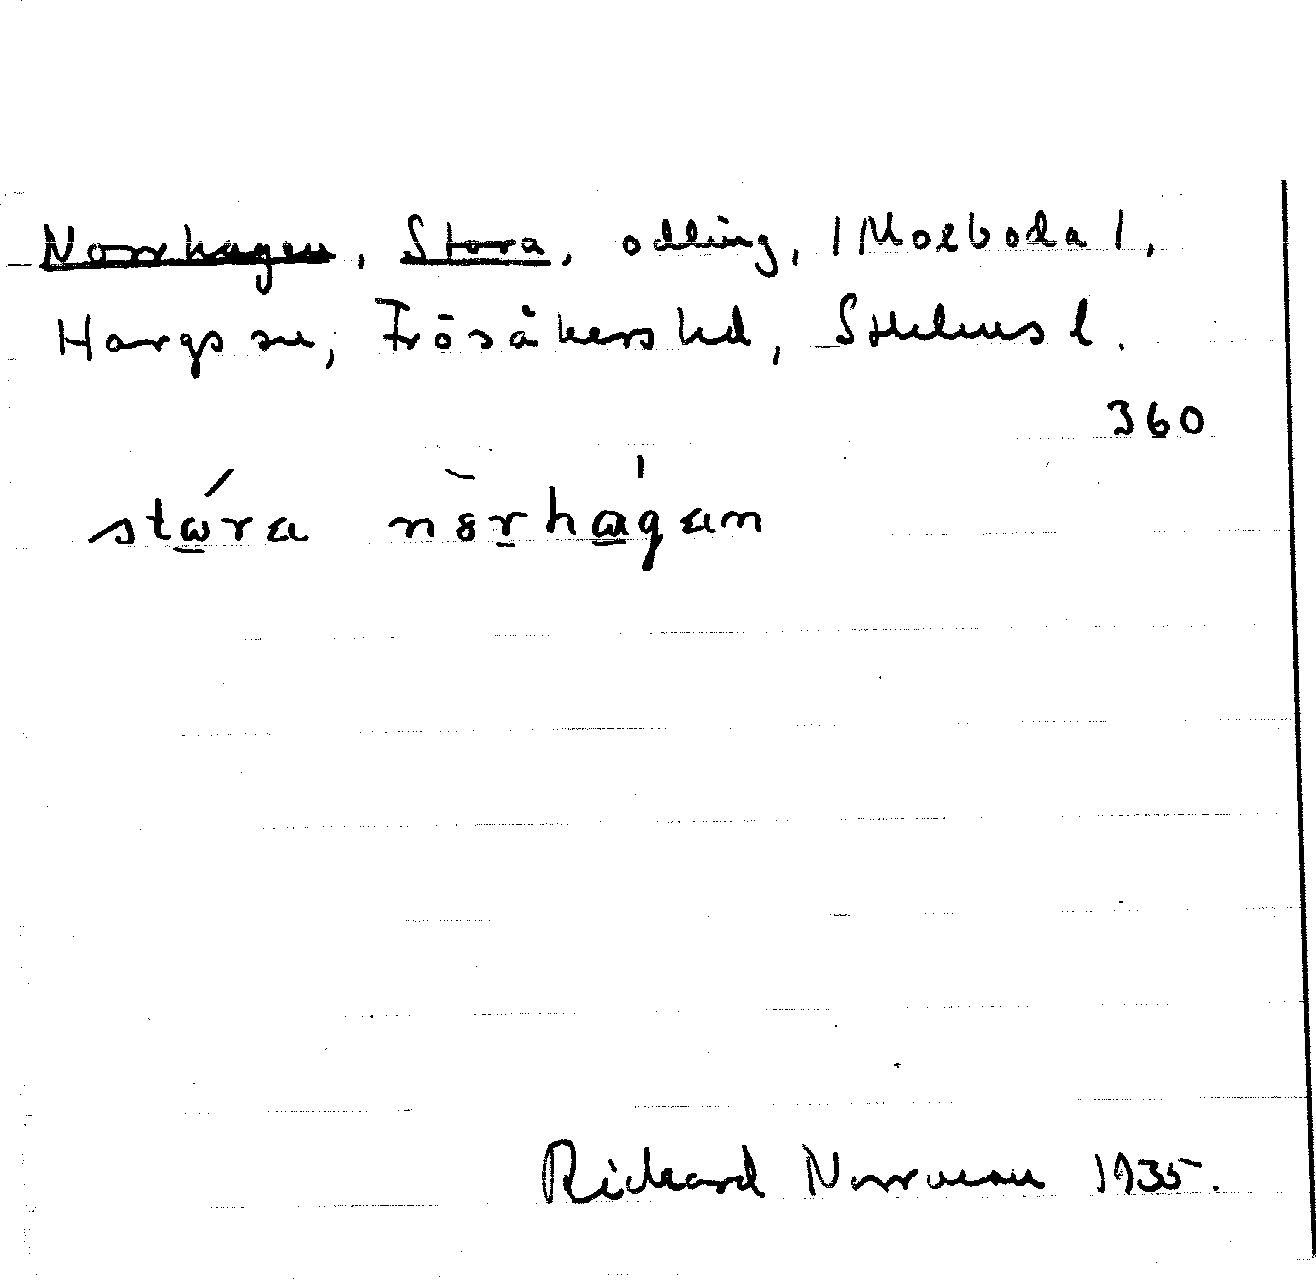 Norrhagen, Stora, odling, (Marboda),
Hargs sn, Frösåkers hd, Sthlms l.
360
stǿra nörhagan
Rickard Norrman 1935.